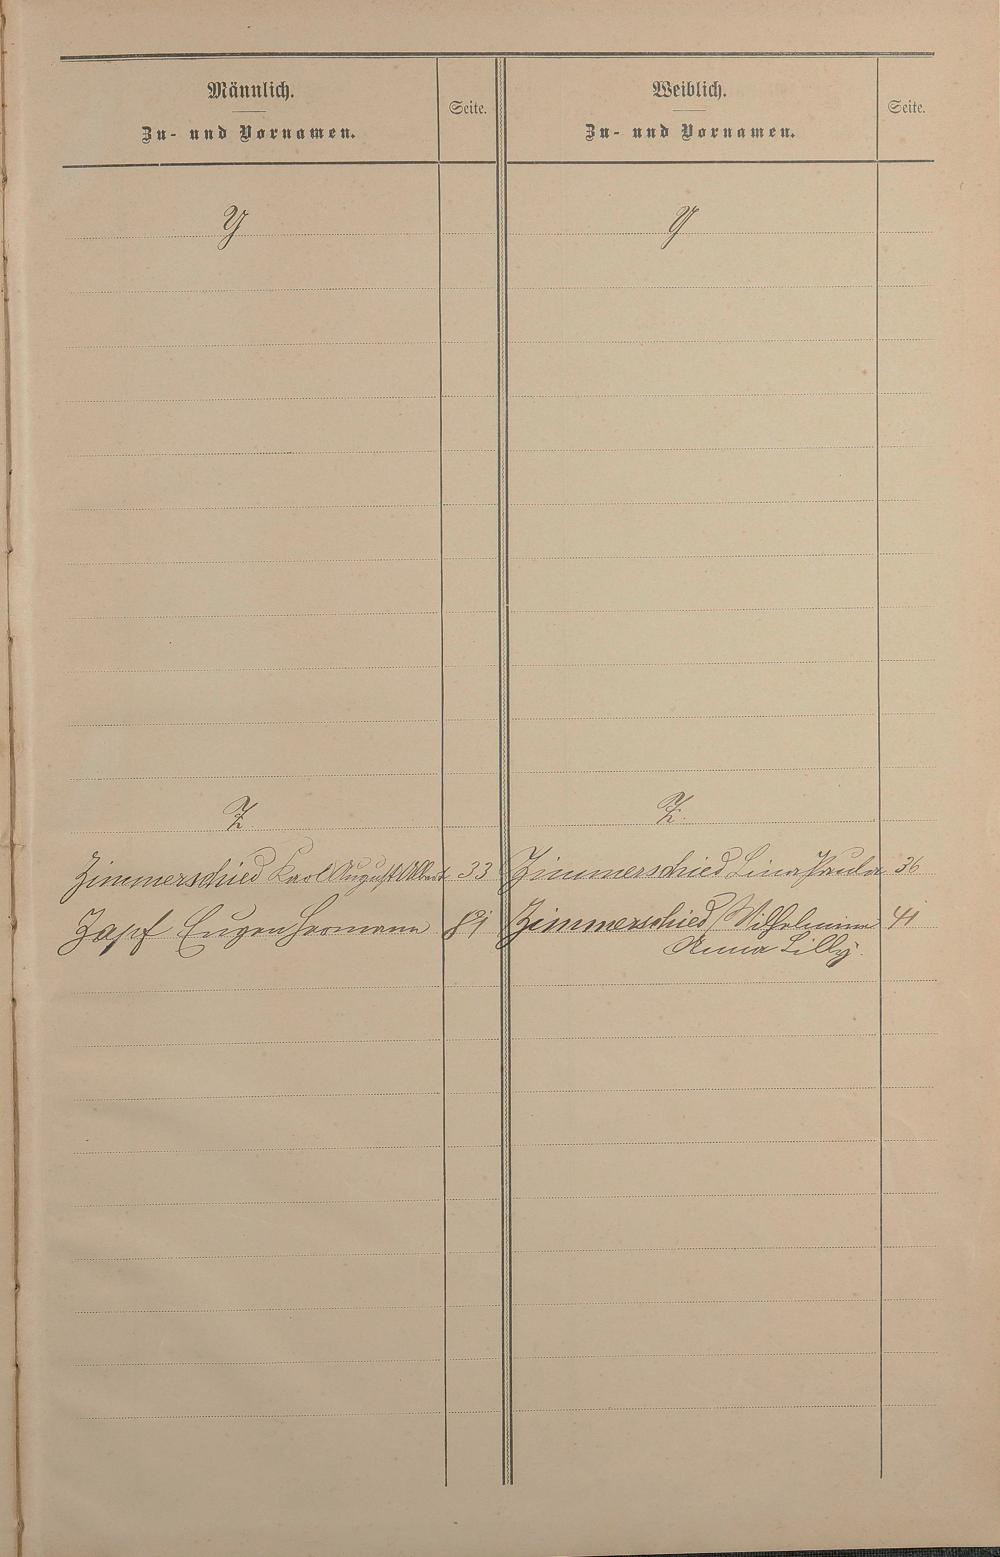 Männlich.
Zu- und Vornamen.
Seite.
Weiblich.
Zu- und Vornamen.
Seite.
Y
Y
Z.
Z.
Zimmerschied Karl August Albert 33
Zimmerschied Lina Paula 36
Zapf Eugen Hermann 81
Zimmerschied Wilhelmine 41
Anna Lilly.